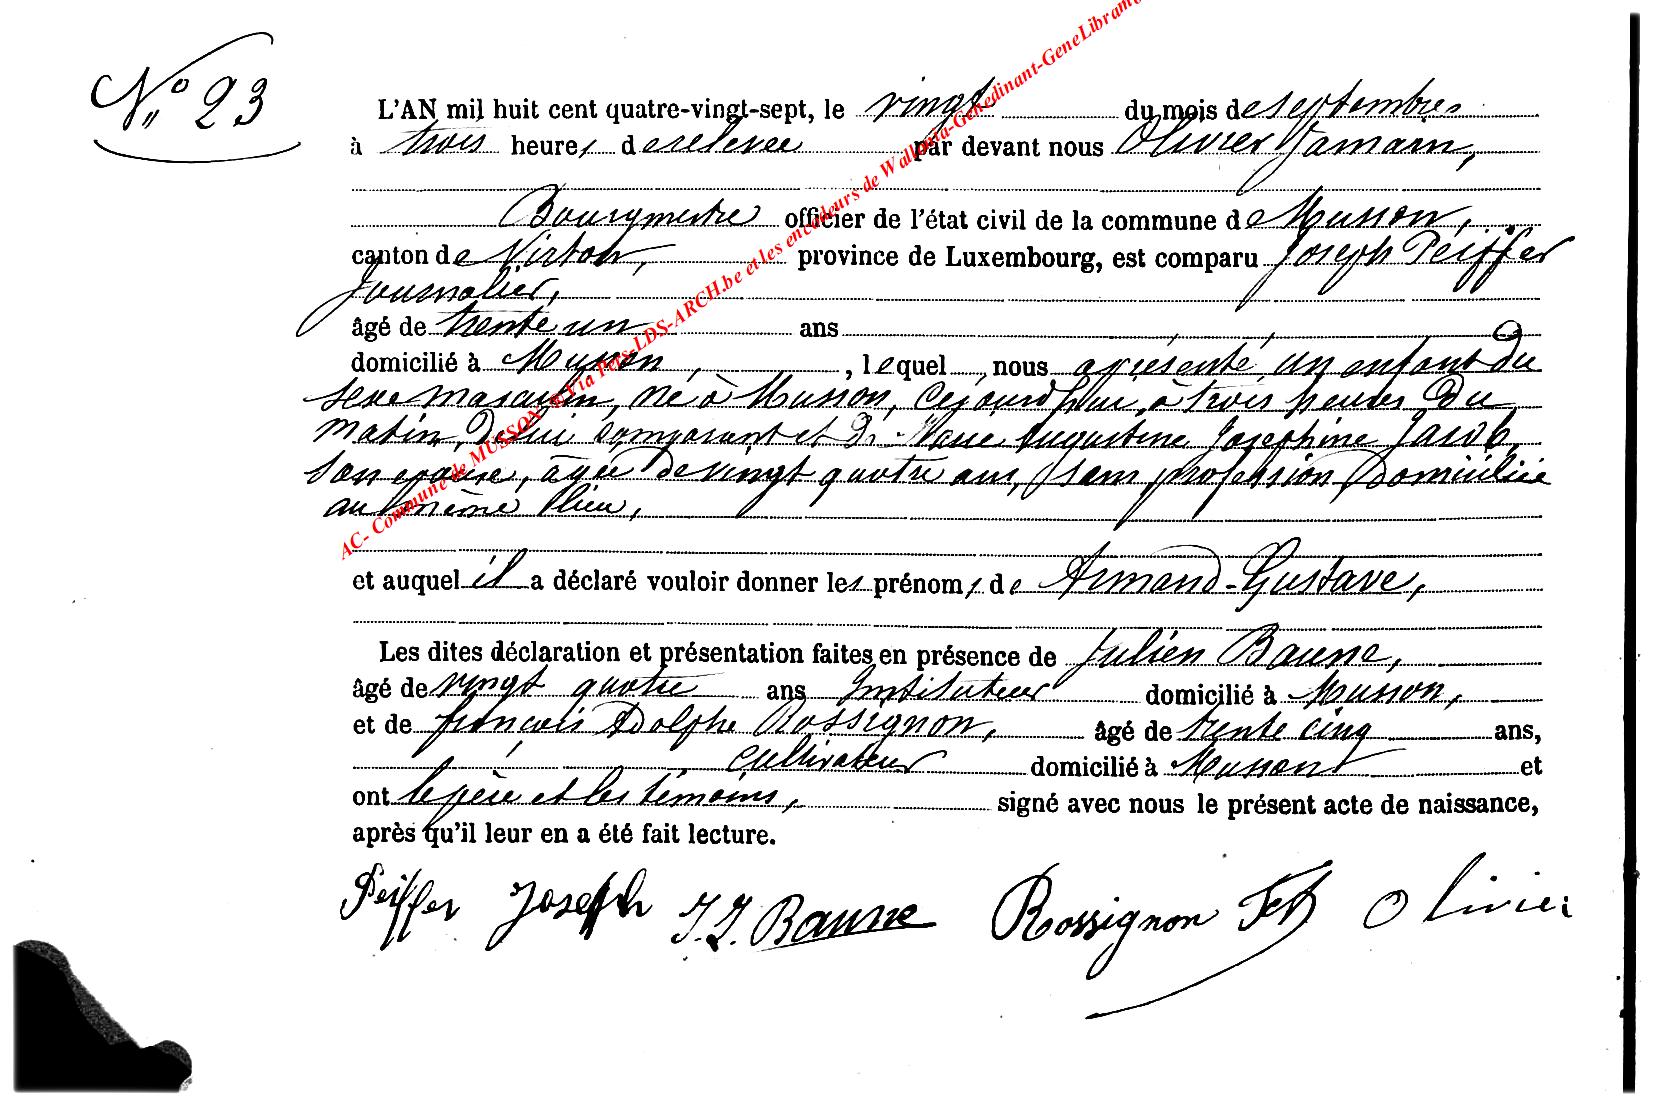 N° 23
L'AN mil huit cent quatre-vingt-sept, le vingt du mois de septembre
à trois heures de relevée par devant nous Olivier Jamain,
Bourgmestre officier de l'état civil de la commune de Musson,
canton de Virton, province de Luxembourg, est comparu Joseph Peiffer
Journalier,
âgé de trente un ans
domicilié à Musson, , lequel nous a présenté un enfant du
sexe masculin, né à Musson, cejourd'hui, à trois heures du
matin, de lui comparant et de Marie Augustine Joséphine Jacob,
son épouse, âgée de vingt quatre ans, sans profession, domiciliée
au même lieu,
et auquel il a déclaré vouloir donner les prénoms de Armand-Gustave,
Les dites déclaration et présentation faites en présence de Julien Baune,
âgé de vingt quatre ans Instituteur domicilié à Musson,
et de françois Adolphe Rossignon, âgé de trente cinq ans,
cultivateur domicilié à Musson et
ont le père et les témoins, signé avec nous le présent acte de naissance,
après qu'il leur en a été fait lecture.
Peiffer Joseph J. J. Baune Rossignon Olivier
AC- Commune de MUSSON - Via Pers-LDS-ARCH.be et les encodeurs de Wallonia-Genedinant-GeneLibramo